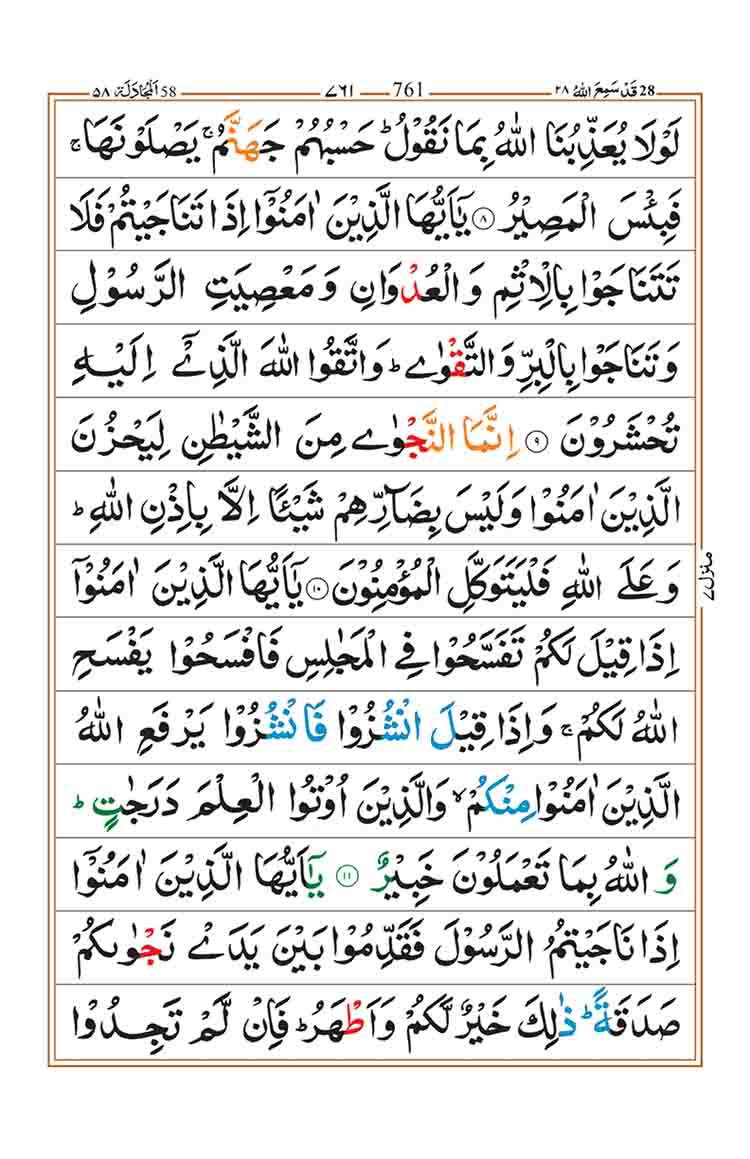 28 قَدْ سَمِعَ اللّٰهُ ٢٨ 761 ٧٦١ 58 اَلْمُجَادَلَة ٥٨
لَوْلَا يُعَذِّبُنَا اللّٰهُ بِمَا نَقُوْلُ ؕ حَسْبُهُمْ جَهَنَّمُ ۚ يَصْلَوْنَهَا ۚ
فَبِئْسَ الْمَصِيْرُ ۟۸ يٰۤاَيُّهَا الَّذِيْنَ اٰمَنُوْۤا اِذَا تَنَاجَيْتُمْ فَلَا
تَتَنَاجَوْا بِالْاِثْمِ وَالْعُدْوَانِ وَمَعْصِيَتِ الرَّسُوْلِ
وَتَنَاجَوْا بِالْبِرِّ وَالتَّقْوٰے ؕ وَاتَّقُوا اللّٰهَ الَّذِيْۤ اِلَيْهِ
تُحْشَرُوْنَ ۟۹ اِنَّمَا النَّجْوٰے مِنَ الشَّيْطٰنِ لِيَحْزُنَ
الَّذِيْنَ اٰمَنُوْا وَلَيْسَ بِضَآرِّهِمْ شَيْـًٔا اِلَّا بِاِذْنِ اللّٰهِ ؕ
وَعَلَے اللّٰهِ فَلْيَتَوَكَّلِ الْمُؤْمِنُوْنَ ۟۱۰ يٰۤاَيُّهَا الَّذِيْنَ اٰمَنُوْۤا
اِذَا قِيْلَ لَكُمْ تَفَسَّحُوْا فِے الْمَجٰلِسِ فَافْسَحُوْا يَفْسَحِ
اللّٰهُ لَكُمْ ۚ وَاِذَا قِيْلَ انْشُزُوْا فَانْشُزُوْا يَرْفَعِ اللّٰهُ
الَّذِيْنَ اٰمَنُوْا مِنْكُمْ ۙ وَالَّذِيْنَ اُوْتُوا الْعِلْمَ دَرَجٰتٍ ؕ
وَ اللّٰهُ بِمَا تَعْمَلُوْنَ خَبِيْرٌ ۟۱۱ يٰۤاَيُّهَا الَّذِيْنَ اٰمَنُوْۤا
اِذَا نَاجَيْتُمُ الرَّسُوْلَ فَقَدِّمُوْا بَيْنَ يَدَےْ نَجْوٰىكُمْ
صَدَقَةً ؕ ذٰلِكَ خَيْرٌ لَّكُمْ وَاَطْهَرُ ؕ فَاِنْ لَّمْ تَجِدُوْا
منزل ٧